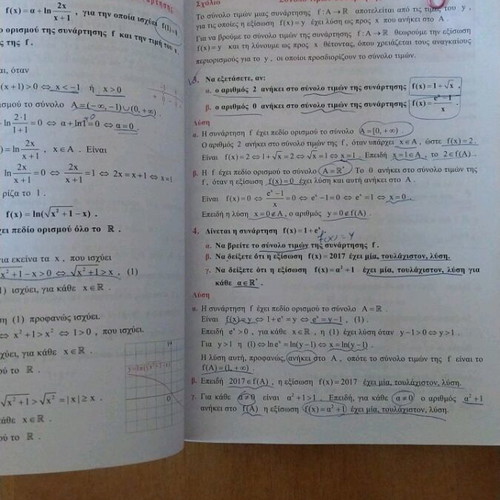 f(x) = α + ln 2x/(x+1) , για την οποία ισχύει f(1)=0
ο ορισμού της συνάρτησης f και την τιμή του
ς της f .
αι, όταν
(x+1) > 0 ⇔ x < −1 ή x > 0
ρισμού το σύνολο A = (−∞, −1) ∪ (0, +∞)
ln 2·1/(1+1) = 0 ⇔ α + ln1 = 0 ⇔ α = 0
) = ln 2x/(x+1) , x ∈ A . Είναι
ln 2x/(x+1) = 0 ⇔ 2x/(x+1) = 1 ⇔ 2x = x+1 ⇔ x = 1
ρίζα το 1 .
f(x) = ln(√(x²+1) − x) .
χει πεδίο ορισμού όλο το ℝ .
για εκείνα τα x , που ισχύει
√(x²+1) − x > 0 ⇔ √(x²+1) > x , (1)
1) ισχύει, για κάθε x ∈ ℝ .
ση (1) προφανώς ισχύει.
⇔ x²+1 > x² ⇔ 1 > 0 , που ισχύει.
χύει, για κάθε x ∈ ℝ .
ού το ℝ .
√(x²+1) > √x² = |x| ≥ x .
κάθε x ∈ ℝ .
ού το ℝ .
Σχόλιο
Το σύνολο τιμών μιας συνάρτησης f : A → ℝ αποτελείται από τις τιμές του y ,
για τις οποίες η εξίσωση f(x) = y έχει λύση ως προς x που ανήκει στο A .
Για να βρούμε το σύνολο τιμών της συνάρτησης f : A → ℝ θεωρούμε την εξίσωση
f(x) = y και τη λύνουμε ως προς x θέτοντας, όπου χρειάζεται τους αναγκαίους
περιορισμούς για το y , οι οποίοι προσδιορίζουν το σύνολο τιμών.
3. Να εξετάσετε, αν:
α. ο αριθμός 2 ανήκει στο σύνολο τιμών της συνάρτησης f(x) = 1 + √x .
β. ο αριθμός 0 ανήκει στο σύνολο τιμών της συνάρτησης f(x) = (eˣ−1)/x .
Λύση
α. Η συνάρτηση f έχει πεδίο ορισμού το σύνολο A = [0, +∞)
Ο αριθμός 2 ανήκει στο σύνολο τιμών της f , όταν υπάρχει x ∈ A , ώστε f(x) = 2 .
Είναι f(x) = 2 ⇔ 1 + √x = 2 ⇔ √x = 1 ⇔ x = 1 . Επειδή x = 1 ∈ A , το 2 ∈ f(A) .
β. Η f έχει πεδίο ορισμού το σύνολο A = ℝ* . Το 0 ανήκει στο σύνολο τιμών της
f , όταν η εξίσωση f(x) = 0 έχει λύση και αυτή ανήκει στο A .
Είναι f(x) = 0 ⇔ (eˣ−1)/x = 0 ⇔ eˣ − 1 = 0 ⇔ eˣ = 1 ⇔ x = 0 .
Επειδή η λύση x = 0 ∉ A , ο αριθμός y = 0 ∉ f(A) .
4. Δίνεται η συνάρτηση f(x) = 1 + eˣ .
f(x) = y
α. Να βρείτε το σύνολο τιμών της συνάρτησης f .
β. Να δείξετε ότι η εξίσωση f(x) = 2017 έχει μία, τουλάχιστον, λύση.
γ. Να δείξετε ότι η εξίσωση f(x) = α² + 1 έχει μία, τουλάχιστον, λύση για
κάθε α ∈ ℝ* .
Λύση
α. Η συνάρτηση f έχει πεδίο ορισμού το σύνολο A = ℝ .
Είναι f(x) = y ⇔ 1 + eˣ = y ⇔ eˣ = y − 1 , (1) .
Επειδή eˣ > 0 , για κάθε x ∈ ℝ , η (1) έχει λύση όταν y − 1 > 0 ⇔ y > 1 .
Για y > 1 η (1) ⇔ ln eˣ = ln(y − 1) ⇔ x = ln(y − 1) .
Η λύση αυτή, προφανώς, ανήκει στο A , οπότε το σύνολο τιμών της f είναι το
f(A) = (1, +∞) .
β. Επειδή 2017 ∈ f(A) , η εξίσωση f(x) = 2017 έχει μία, τουλάχιστον, λύση.
γ. Για κάθε α ≠ 0 είναι α² + 1 > 1 . Επειδή, για κάθε α ≠ 0 ο αριθμός α² + 1
ανήκει στο f(A) η εξίσωση f(x) = α² + 1 έχει μία, τουλάχιστον, λύση.